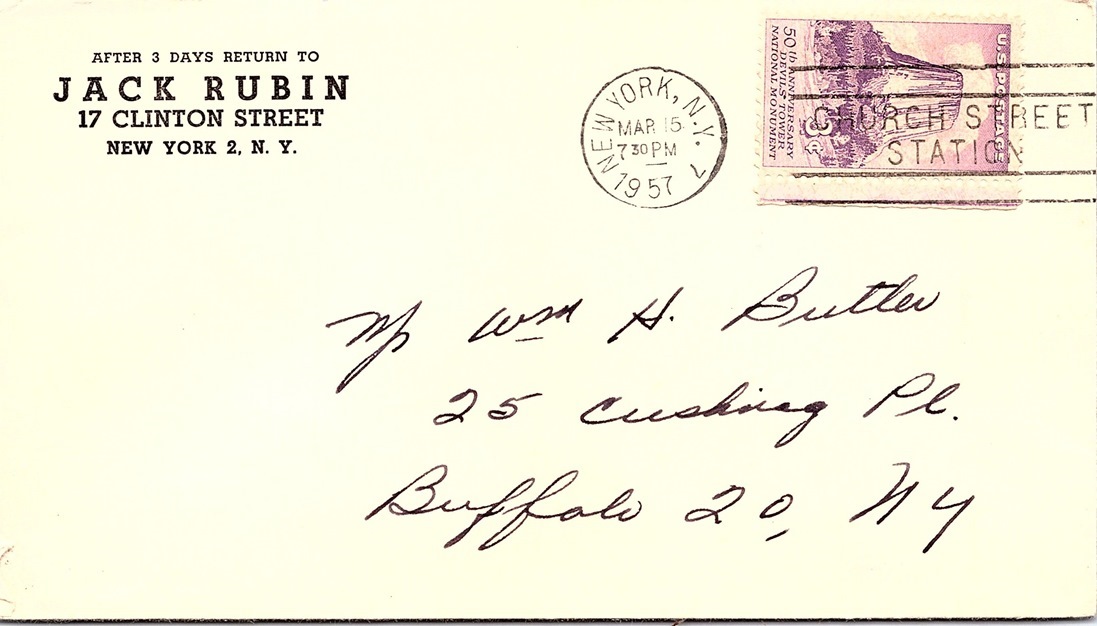 AFTER 3 DAYS RETURN TO
JACK RUBIN
17 CLINTON STREET
NEW YORK 2, N. Y.
NEW YORK, N.Y. 7
MAR 15
7 30 PM
1957
CHURCH STREET
STATION
U.S. POSTAGE
50th ANNIVERSARY
DEVILS TOWER
NATIONAL MONUMENT
3¢
Mr Wm H. Butler
25 Cushing Pl.
Buffalo 20, NY